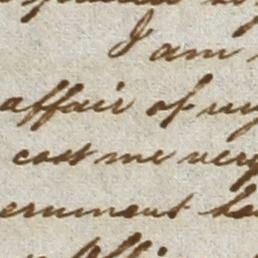 I am
affair of my
cost me very
ernment ha